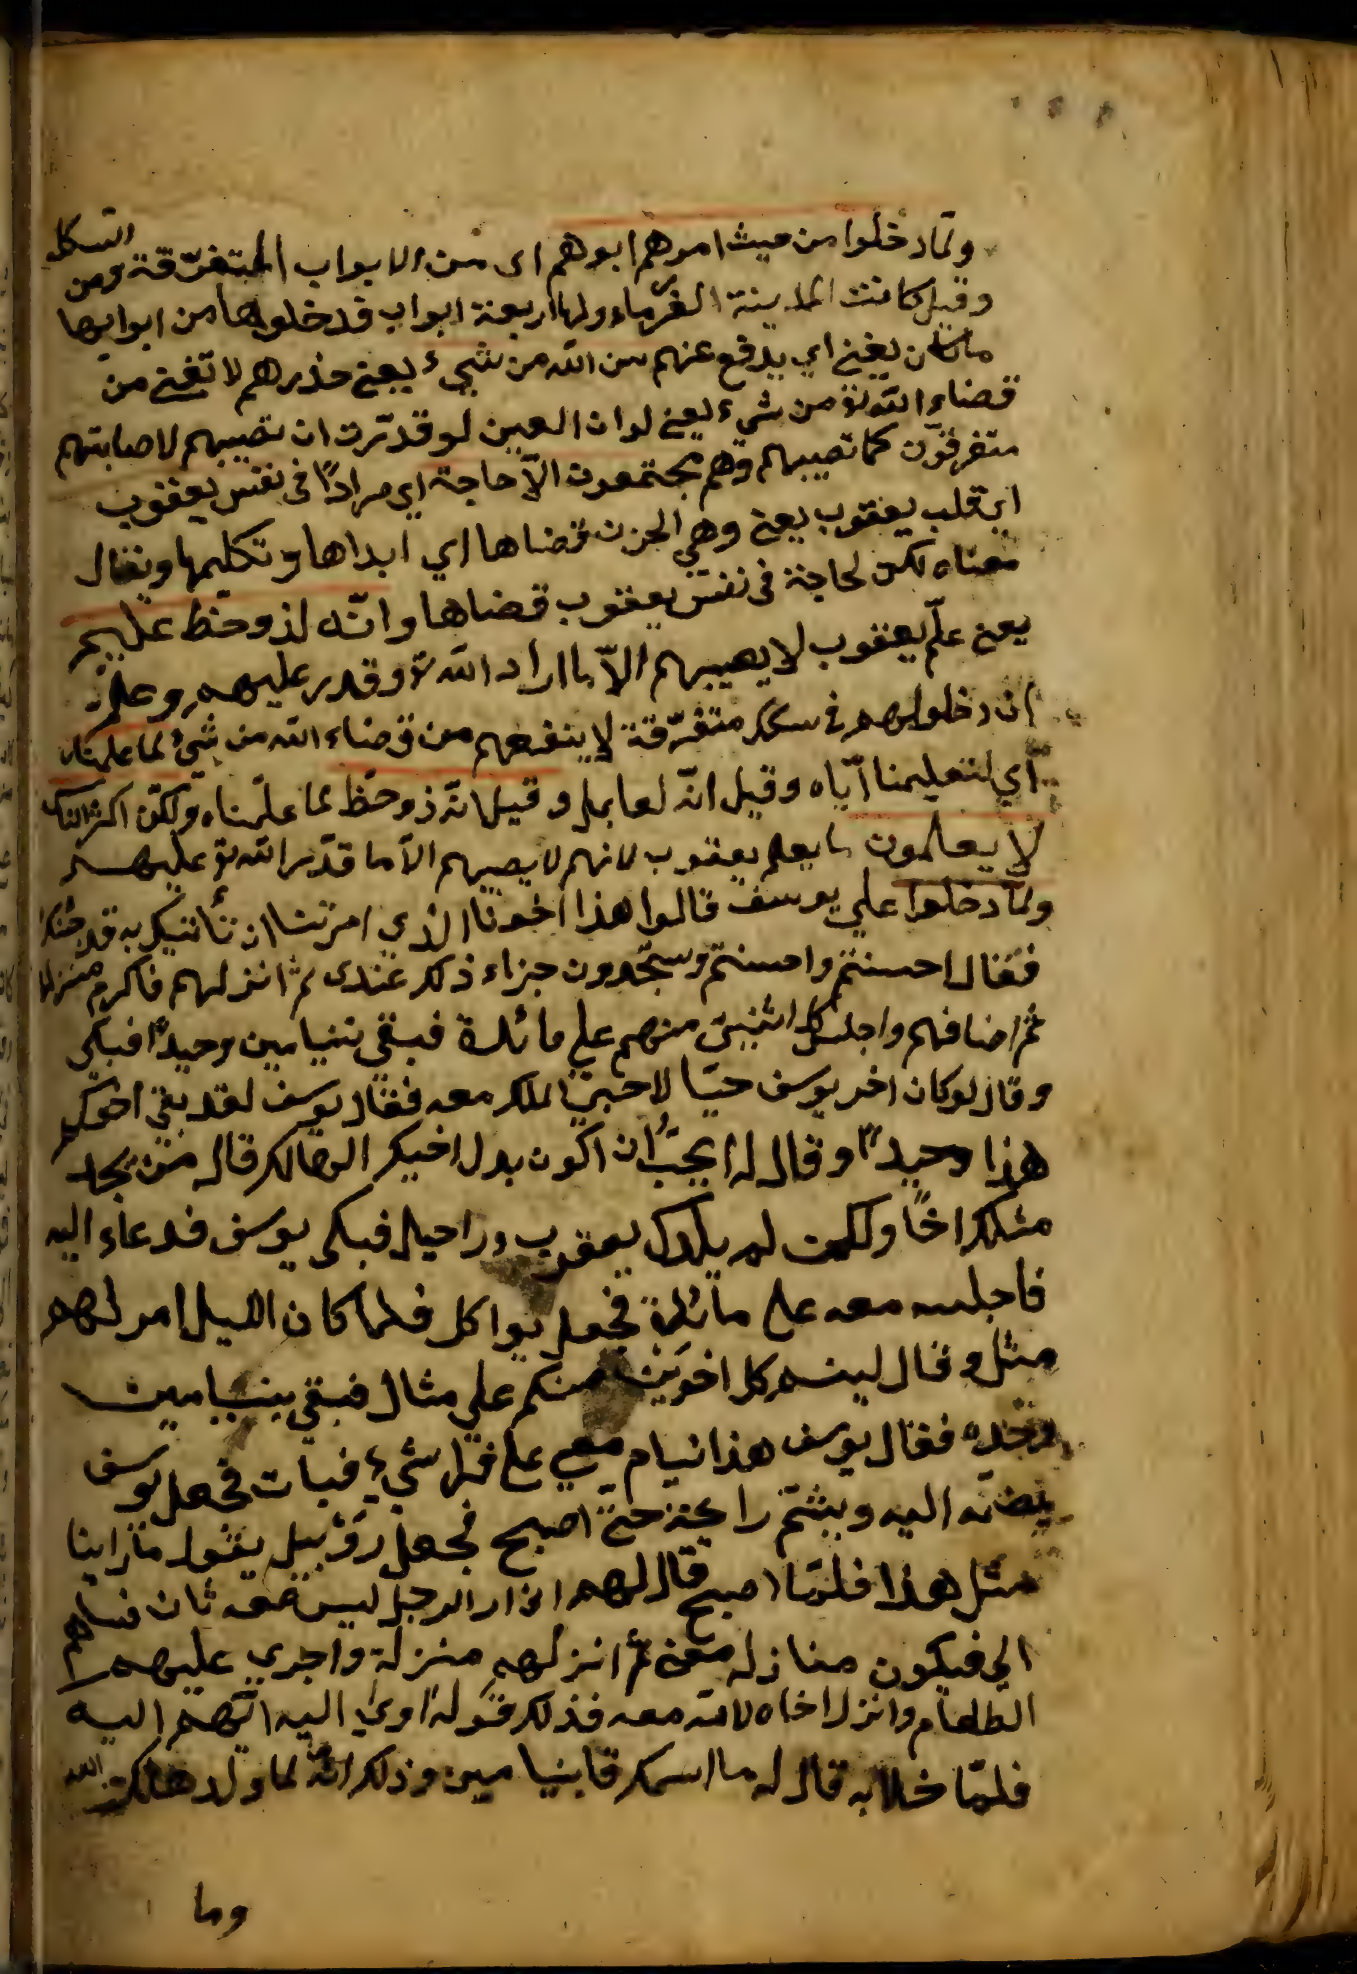 ولمّا دخلوا من حيث امرهم ابوهم اى من الابواب المتفرّقة ومن السكك
وقيل كانت المدينة الفرماء ولها اربعة ابواب فدخلوها من ابوابها
ما كان يغني اي يدفع عنهم من الله من شيء يعني حذرهم لا تغني من
قضاء الله تع من شيء يعني لو ان العين لو قدّرت ان تصيبهم لاصابتهم
متفرقون كما تصيبهم وهم مجتمعون الاّ حاجة اي مراداً في نفس يعقوب
اي قلب يعقوب يعني وهي الحزن قضاها اي ابداها وتكلمها ويقال
معناه لكن لحاجة في نفس يعقوب قضاها وانّه لذو حظ عليهم
يعني علم يعقوب لا يصيبهم الاّ ما اراد الله تع وقدر عليهم وعلم
ان دخولهم في سكك متفرّقة لا ينفعهم من قضاء الله من شيء لما علمناه
اي لتعليمنا ايّاه وقيل انّه لعامل وقيل انّه ذو حظ لما علّمناه ولكنّ اكثر الناس
لا يعلمون ما يعلم يعقوب لانهم لا يصيبهم الاّ ما قدّر الله تع عليهم
ولمّا دخلوا علي يوسف قالوا هذا اخونا الذي امرتنا ان نأتيك به قد جئنك
فقال احسنتم واحسنتم وستجدون جزاء ذلك عندى ثم انزلهم فاكرم منزلهم
ثم اضافهم واجلس كل اثنين منهم علي مائدة فبقي بنيامين وحيداً فبكي
وقال لو كان اخي يوسف حيّا لاجلسني الملك معه فقال يوسف لقد بقي اخوكم
هذا وحيداً وقال له اتحبّ ان اكون بدل اخيك الهالك قال من يجد
مثلك اخاً ولكن لم يلدك يعقوب وراحيل فبكى يوسف فدعاء اليه
فاجلسه معه على مائدة فجعل يواكل فلما كان الليل امر لهم
مثل وقال لينم كل اخوين منكم علي مثال فبقي بنيامين
وحده فقال يوسف هذا نيام معي على فراشيء فبات فجعل يوسف
يضمّه اليه ويشمّ رائحته حتّى اصبح فجعل رؤبيل يقول ما راينا
مثل هذا فلمّا اصبح قال لهم اني ارا الرجل ليس معه ثان فساضم
الي فيكون منازله معي ثم انزلهم منزلة واجري عليهم
الطعام وانزل اخاه لامّه معه فذلك قوله اوي اليه اي ضم اليه
فلمّا خلا به قال له ما اسمك قا بنيامين وذلك انّه لما ولد هلكت امه
وما